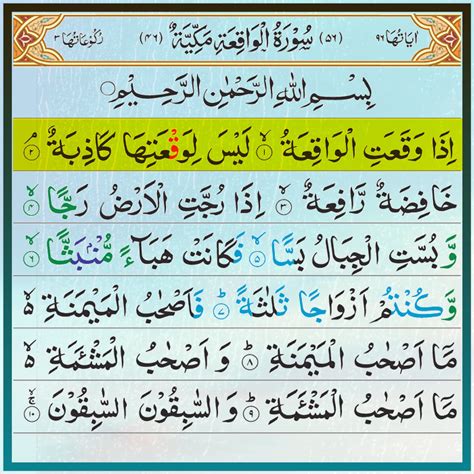 اٰيَاتُهَا ٩٦ (٥٦) سُوْرَةُ الْوَاقِعَةِ مَكِّيَّةٌ (٤٦) رُكُوْعَاتُهَا ٣
بِسْمِ اللهِ الرَّحْمٰنِ الرَّحِيْمِ
اِذَا وَقَعَتِ الْوَاقِعَةُ ۙ ١ لَيْسَ لِوَقْعَتِهَا كَاذِبَةٌ ۘ ٢
خَافِضَةٌ رَّافِعَةٌ ۙ ٣ اِذَا رُجَّتِ الْاَرْضُ رَجًّا ۙ ٤
وَّبُسَّتِ الْجِبَالُ بَسًّا ۙ ٥ فَكَانَتْ هَبَآءً مُّنْۢبَثًّا ۙ ٦
وَّكُنْتُمْ اَزْوَاجًا ثَلٰثَةً ؕ ٧ فَاَصْحٰبُ الْمَيْمَنَةِ ۙ۬
مَاۤ اَصْحٰبُ الْمَيْمَنَةِ ؕ ٨ وَ اَصْحٰبُ الْمَشْـَٔمَةِ ۙ۬
مَاۤ اَصْحٰبُ الْمَشْـَٔمَةِ ؕ ٩ وَ السّٰبِقُوْنَ السّٰبِقُوْنَ ۚۙ ١٠